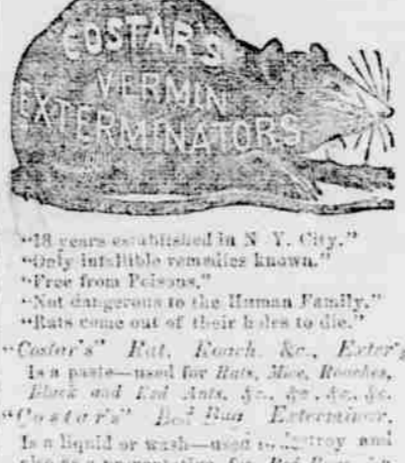 COSTAR'S
VERMIN
EXTERMINATORS
"18 years established in N. Y. City."
"Only infallible remedies known."
"Free from Poisons."
"Not dangerous to the Human Family."
"Rats come out of their holes to die."
"Costar's" Rat, Roach, &c., Exter's
Is a paste—used for Rats, Mice, Roaches,
Black and Red Ants, &c., &c., &c., &c.
"Costar's" Bed Bug Exterminator.
Is a liquid or wash—used to destroy and